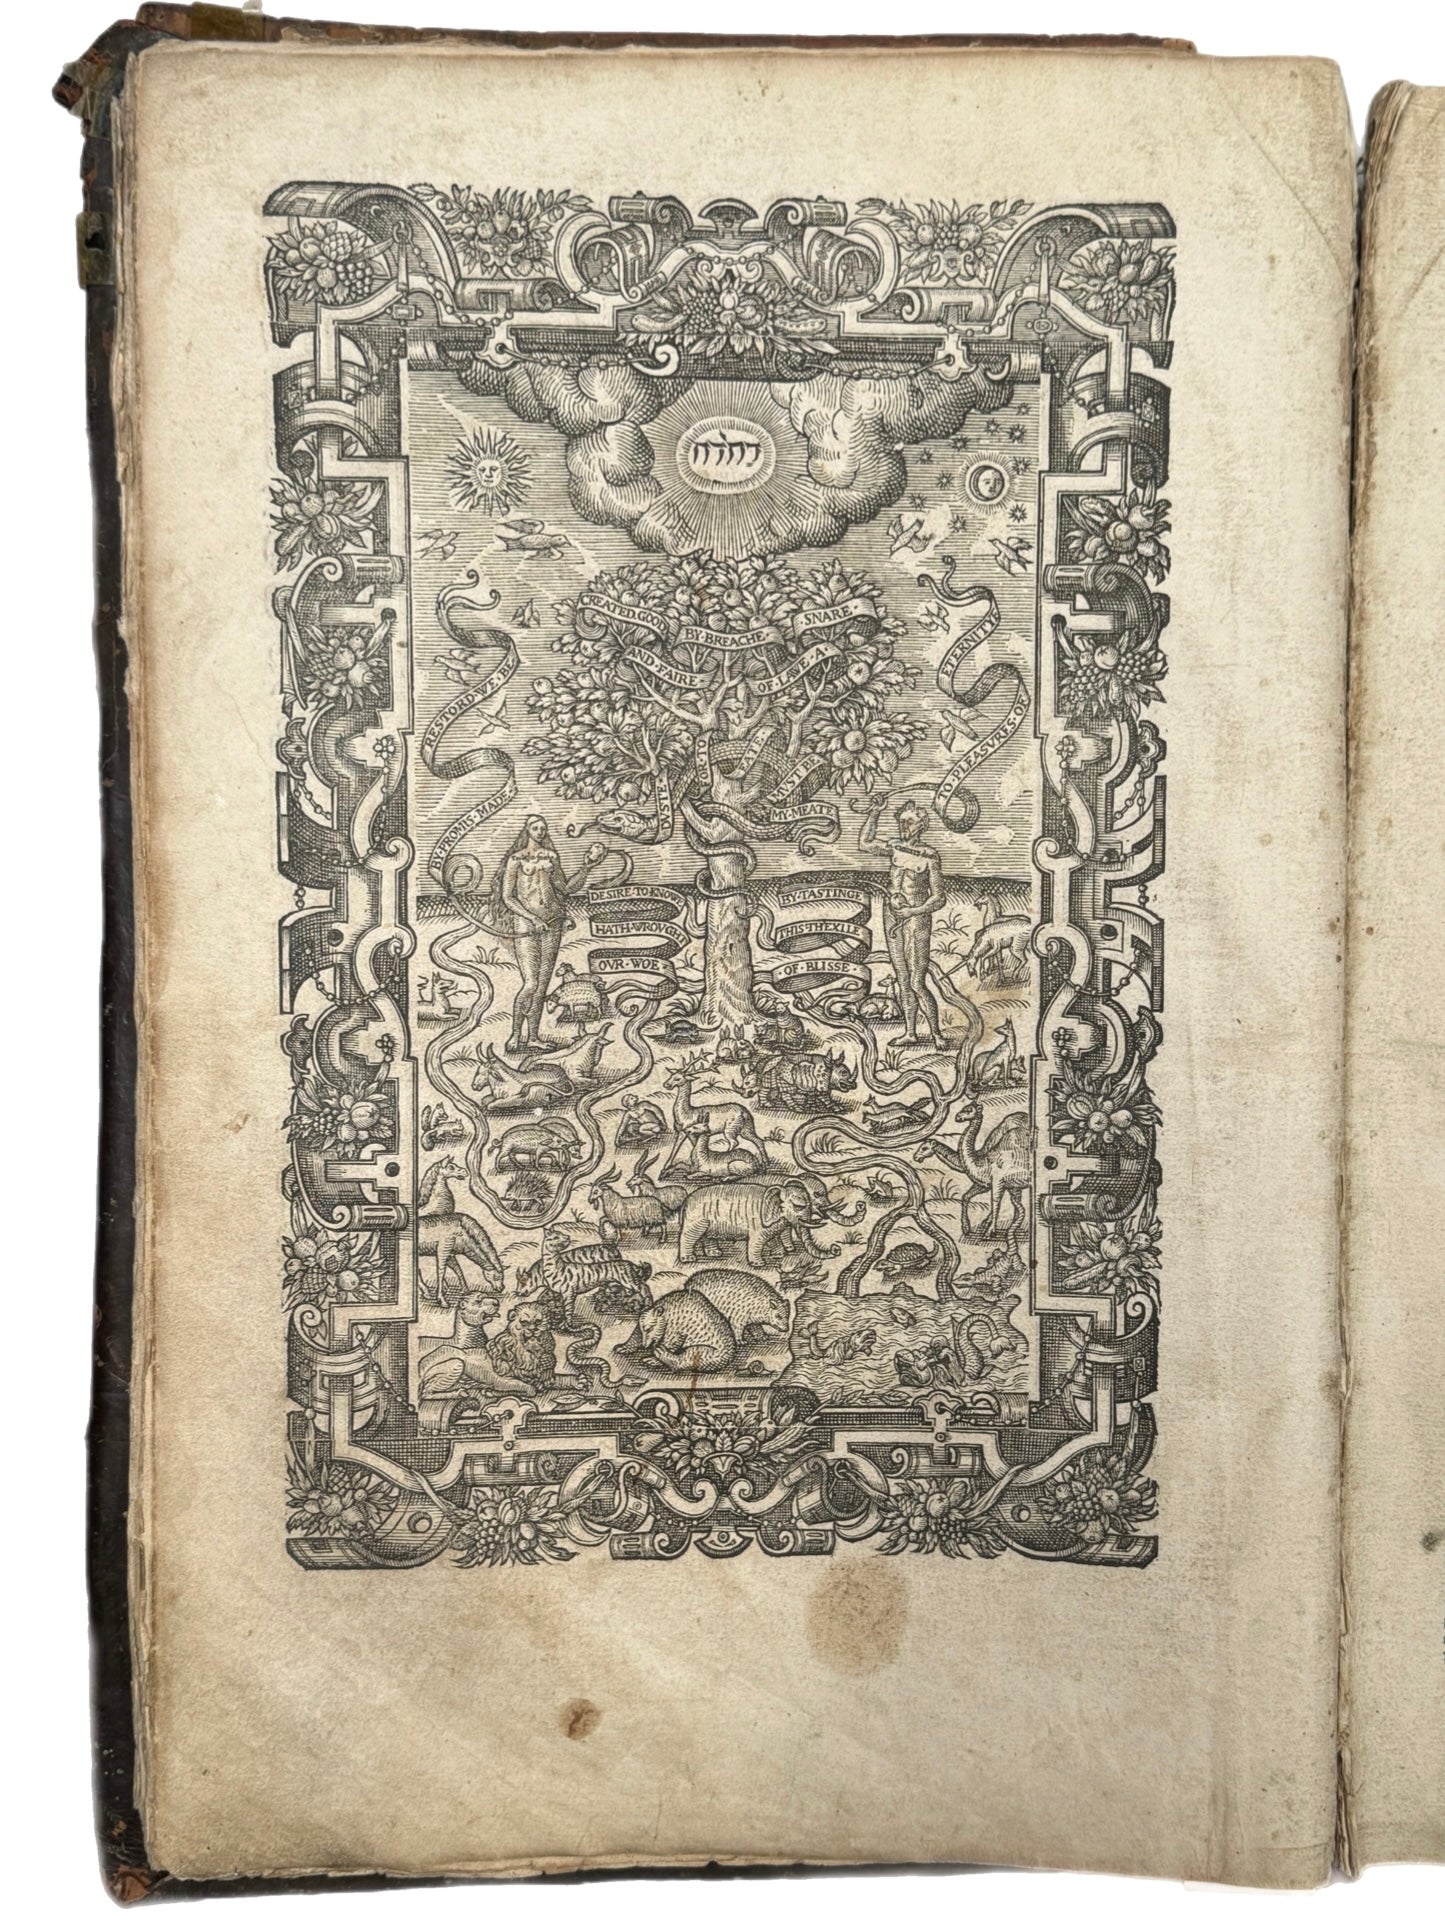 יהוה
CREATED·GOOD
AND·FAIRE·
BY·BREACHE·
OF·LAWE·A·
SNARE·
DVSTE
FOR·TO
EATE·
MVST·BE
MY·MEATE
BY·PROMIS·MADE·
RESTORD·WE·BE
TO·PLEASVRES·OF
ETERNITYE
DESIRE·TO·KNOWE
HATH·WROVGHT
OVR·WOE·
BY·TASTINGE
THIS·THEXILE
OF·BLISSE·